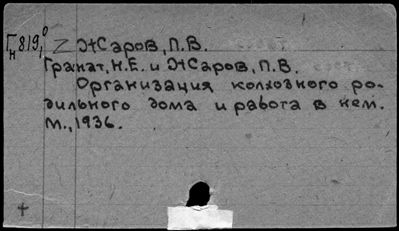 Гн819,0 Z Жаров, П.В.
Гранат, Н.Е. и Жаров, П.В.
Организация колхозного ро-
дильного дома и работа в нем.
М., 1936.